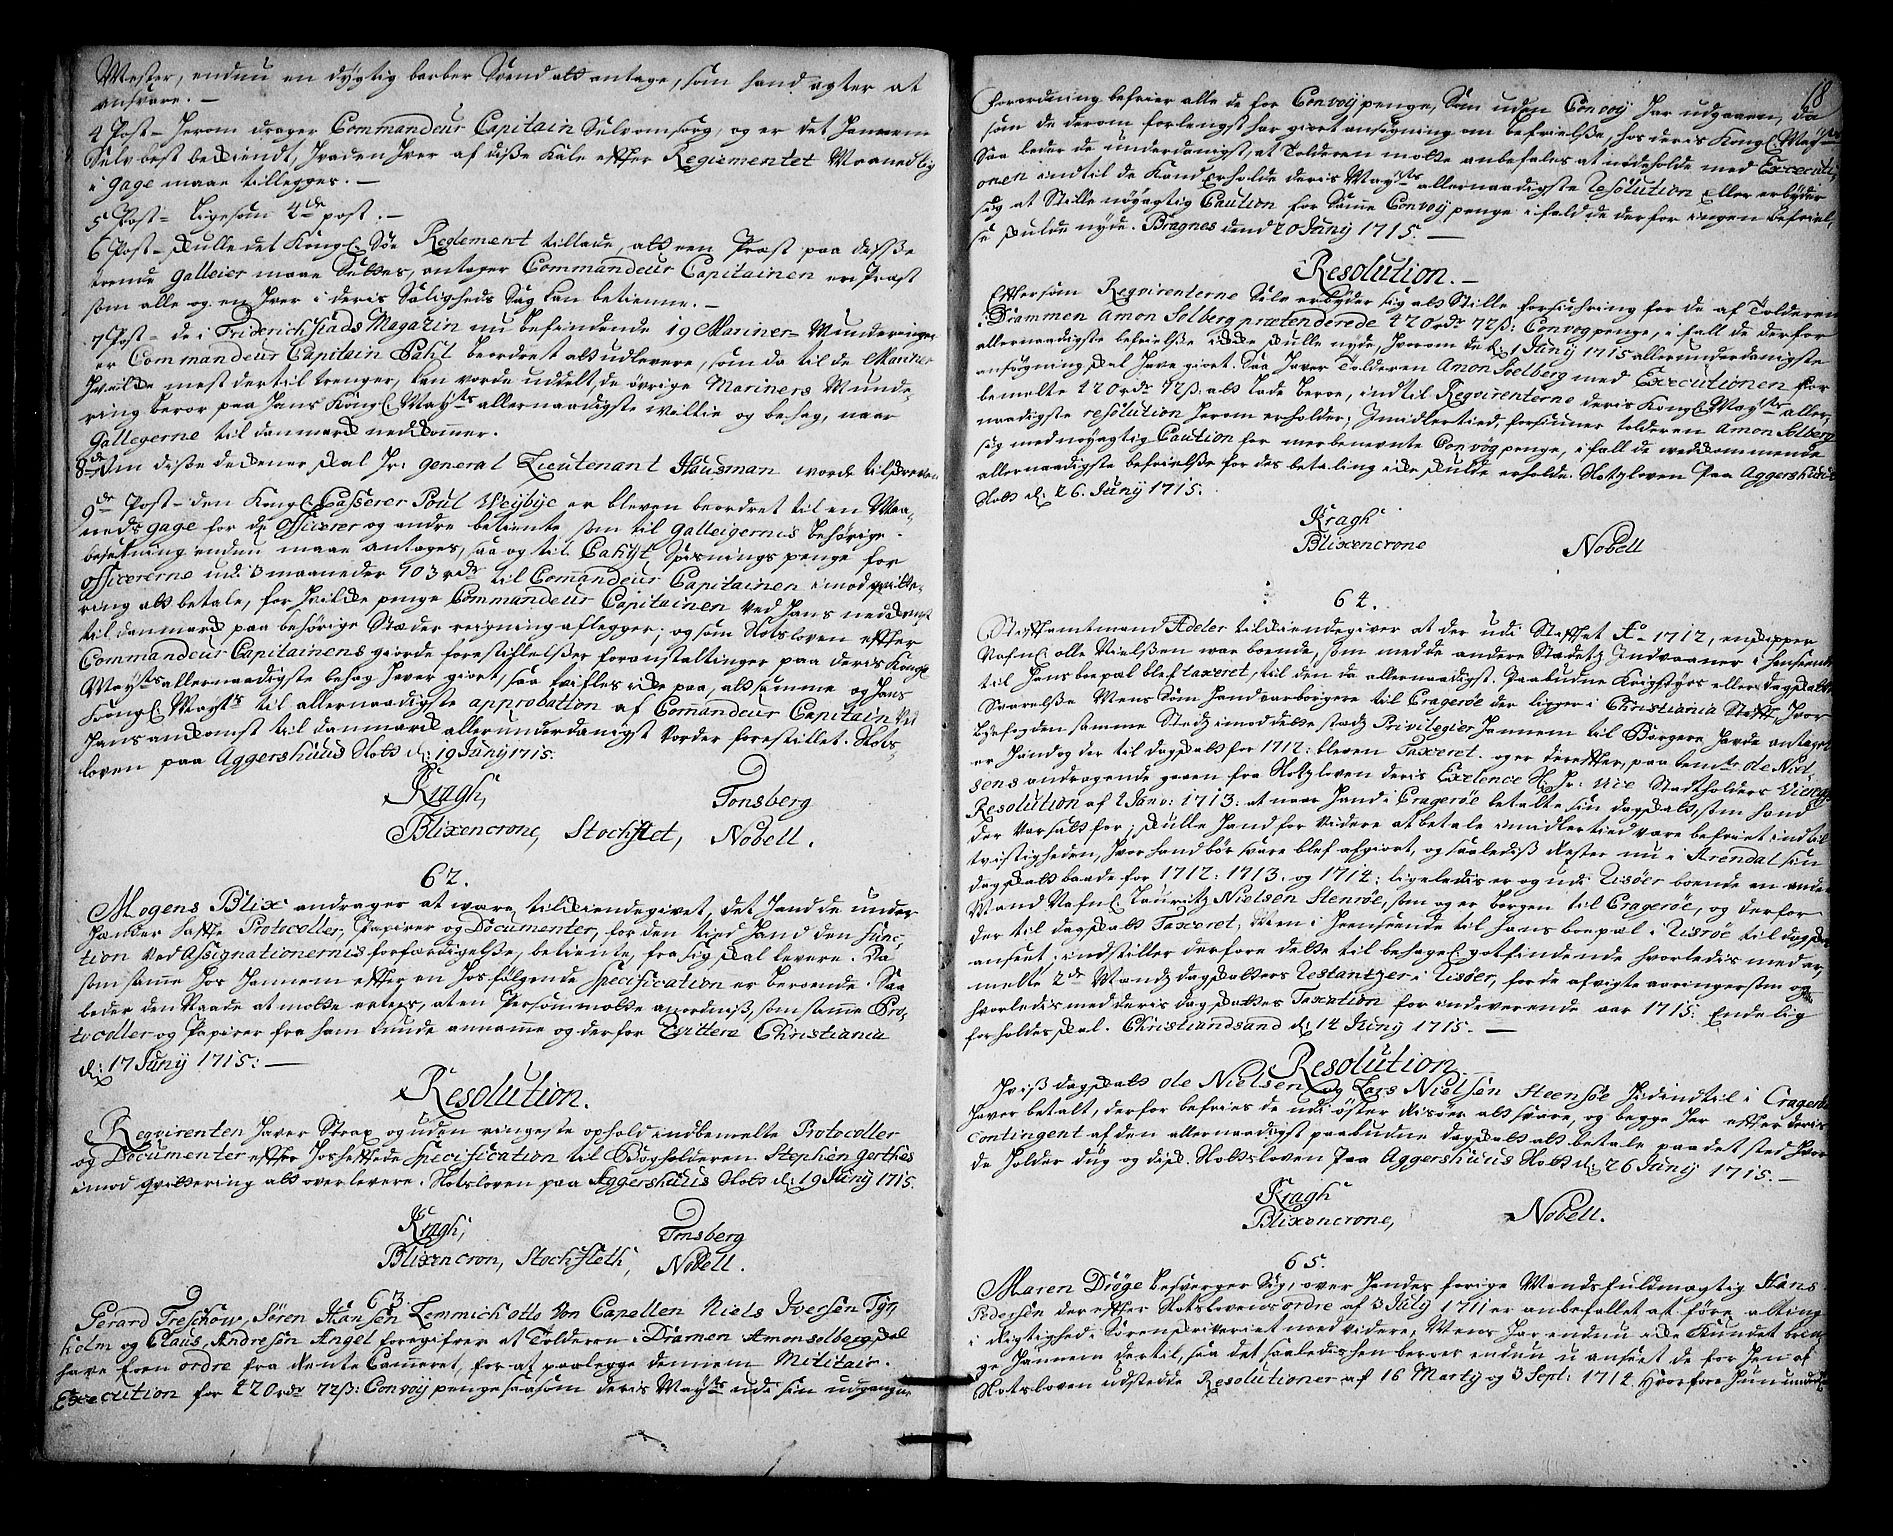 Mester, endnu en dygtig barber Svend att antage, som hand agter at
ansvare. –
4 Post – Herom drager Commandeur Capitain Selv omsorg, og er det hannem
Selv best bekiendt, hvad en hver af disse Kale effter Regiementet Maanedlig
i gage maae tillegges. –
5 Post – Ligesom 4de post. –
6 Post – Skulle det Kongl. Søe Reglement tillade, att een Præst paa disse
trende galleier maae Settes, antager Commandeur Capitainen en Præst
som alle og en hver i deris Saligheds Sag kan betienne. –
7 Post – de i Friderichstads Magazin nu befindende 19 Mariner-Munderinger
er Commandeur Capitain Pahl beordret att udlevere, som da til de Mariner
hvilcke mest dertil trenger, kan vorde uddelt, de øvrige Mariners Munde,
ring beror paa Hans Kongl. Mayts allernaadigste Willie og behag, naar
Gallegerne til danmarck nedkommer.
8de Om disse deckener skal Hr. general Lieutenant Hausman worde tilskreven
9de Post – den Kongl. Casserer Poul Weybye er bleven beordret til en Maa,
neds gage for de Officerer og andre betiente som til galleigernis behørige
besetning endnu maae antages, saa og til Cahyt, Spisnings penge for
Officererne udi 3 maaneder 103 rdr til Commandeur Capitainen imod qvitte,
ring att betale, for hvilcke penge Commandeur Capitainen ved hans nedkomst
til danmarck paa behørige Stæder reigning aflegger; og som Slotsloven effter
Commandeur Capitainens giorde forestillelser foranstaltninger paa deris Kongl.
Mayts allernaadigste behag haver giort, saa tvifles icke paa, att samme og hans
Kongl. Mayts til allernaadigste approbation af Commandeur Capitain ved
hans ankomst til danmarck allerunderdanigst vorder forestillet. Slots,
loven paa Aggershuus Slott d: 19 Juny 1715.
Kragh, Tonsberg
Blixencrone, Stochflet, Nobell.
62.
Mogens Blix andrager at være tilkiendegivet, det hand de under
hænder hafte Protocoller, Papirer og Documenter, for den tied hand den func,
tion ved Assignationernis forfærdigelse, betiente, fra sig skal levere. Da
som same hos hannem effter en hos følgende Specification er beroende. Saa
beder den Naade at motte ertees, at en Person motte anordnis, som samme Pro,
tocoller og Papirer fra ham kunde annamme og derfor Qvittere Christiania
d: 17 Juny 1715: –
Resolution.
Reqvirenten haver Strax og uden ringeste ophold indbemelte Protocoller
og Documenter effter hosheftede Specification til Bogholderen Stephen Gerthes
imod qvittering att overlevere. Slotsloven paa Aggershuus Slott d: 19 Juny 1715.
Kragh, Tonsberg
Blixencron, Stochfleth, Nobell.
63
Gerard Treschow, Søren Hansen Lemmich otto Von Capellen Niels Iversen Tyr
holm og Claus Andresen Angel foregifver at Tolderen i Dramen Amon solberg skal
have foen ordre fra Rente Cammeret, for at paalegge dennem Militair.
Execution for 220 rdr 72 ß: Convoy penge saasom deris May udi sin udgangne
18
forordning befrier alle de for Convoy penge, Som uden Convoy har udgaaen, da
som de derom forlengst har giort ansøgning om befrielse, hos deris Kongl. Mayts
Saa beder de underdanigst, at Tolderen motte anbefales at indeholde med Executi,
onen indtil de kand erholde deris Mayts allernaadigste Resolution eller erbyder
sig at Stille nøyagtig Caution for Samme Convoy penge i fald de derfor ingen befriel,
se skulde nyde. Bragnes dend 20 Juny 1715. –
Resolution. –
Effter som Reqvirenterne Selv erbyder sig att Stille forsichring for de af Tolderen
i Drammen Amon Solberg prætenderede 220 rdr 72ß: Convoy penge, i fall de derfor
allernaadigste befrielse icke skulle nyde, hvorom de d: 1 Juny 1715 allerunderdanigste
ansøgning skal have giort. Saa haver Tolderen Amon Soelberg med Executionen for
bemelte 220 rdr 72ß: att lade beroe, indtil Reqvirenterne deris Kongl. Mayts aller,
naadigste resolution herom erholder; Imidlertied, forsiuner tolderen Amon Solberg
sig med nøyagtig Caution for merbenevnte Convoy penge, i fall de wedkommende
allernaadigste befrielse for des betaling icke skulde erholde. Slotzloven paa Aggershuus
Slott d: 26. Juny 1715.
Kragh
Blixencrone Nobell
64.
Stifftamtmand Adeler tilkiendegiver at der udi Stifftet Ao 1712, en skipper
Nafnl. olle Nielssen war boende, som med de andre Stædetz Indvaaner i henseende
til hans boepæl blef taxeret, til den da allernaadigst. Paabudne Krigstyrs eller dagskatts
Svarelse Mens Som hand var borgere til Cragerøe der ligger i Christiania Stifft, hvor
byefogden samme Stædz imod dette stædz Privilegier hannem til Borgere hafde antaget
er hand og der til dagskatt for 1712: bleven Taxeret. og er dereffter, paa bemte Ole Niel,
sens andragende gaaen fra Slotzloven deris Exelence H. Hr. vice Stadtholders
Resolution af 2 Janv: 1713: at naar hand i Cragerøe betalte sin dagskatt, som hand
der var satt for; skulle hand for videre at betale imidlertied være befriet indtil
tvistigheden, hvor hand bør svare blef afgiort, og saaledis Rester nu i Arendal sin
dagskatt baade for 1712: 1713. og 1714: ligeledis er og udi Risøer boende en anden
Mand Nafnl. Lauritz Nielsen Stensøe, som og er borger til Cragerøe, og derfor
der til dagskatt Taxeret; Men i Heenseende til hans boepæl i Risøe til dagskatt
anseet; indstiller derfore dette til behagel. gotfindende hvorledis med er,
melte 2de Mænds dagskatters Restantzer i Risøer, for de afvigte aaringer som og
hvorledis med deris dagskattes Taxation for indeverende aar 1715: Endelig
forholdes skal. Christiandsand d: 14 Juny 1715. –
Resolution
Hvis dagskatt Ole Nielsen og Lars Nielsen Steensøe hidindtil i Cragerøe
haver betalt, derfor befries de udi øster Risøer att svare, og begge her effter deris
contingent af den allernaadigst paabudne dagskatt att betale paa det sted hvor
de holder dug og disk. Slottsloven paa Aggershuus Slott d: 26 Juny 1715. –
Kragh
Blixencrone, Nobell.
65.
Maren Dröge besverger Sig, over hendes forige Mands fuldmægtig Hans
Pedersen der effter Slotslovens ordre af 3 July 1711 er anbefallet at føre alting
i Rigtighed Sørenskriveriet med videre; Mens har endnu icke kundet brin,
ge hannem dertil, saa det saaledis henberoes endnu u anseet de for hen af
Slotsloven udstedde Resolutioner af 16 Marty og 3 Sept: 1714. Hvorfore hun